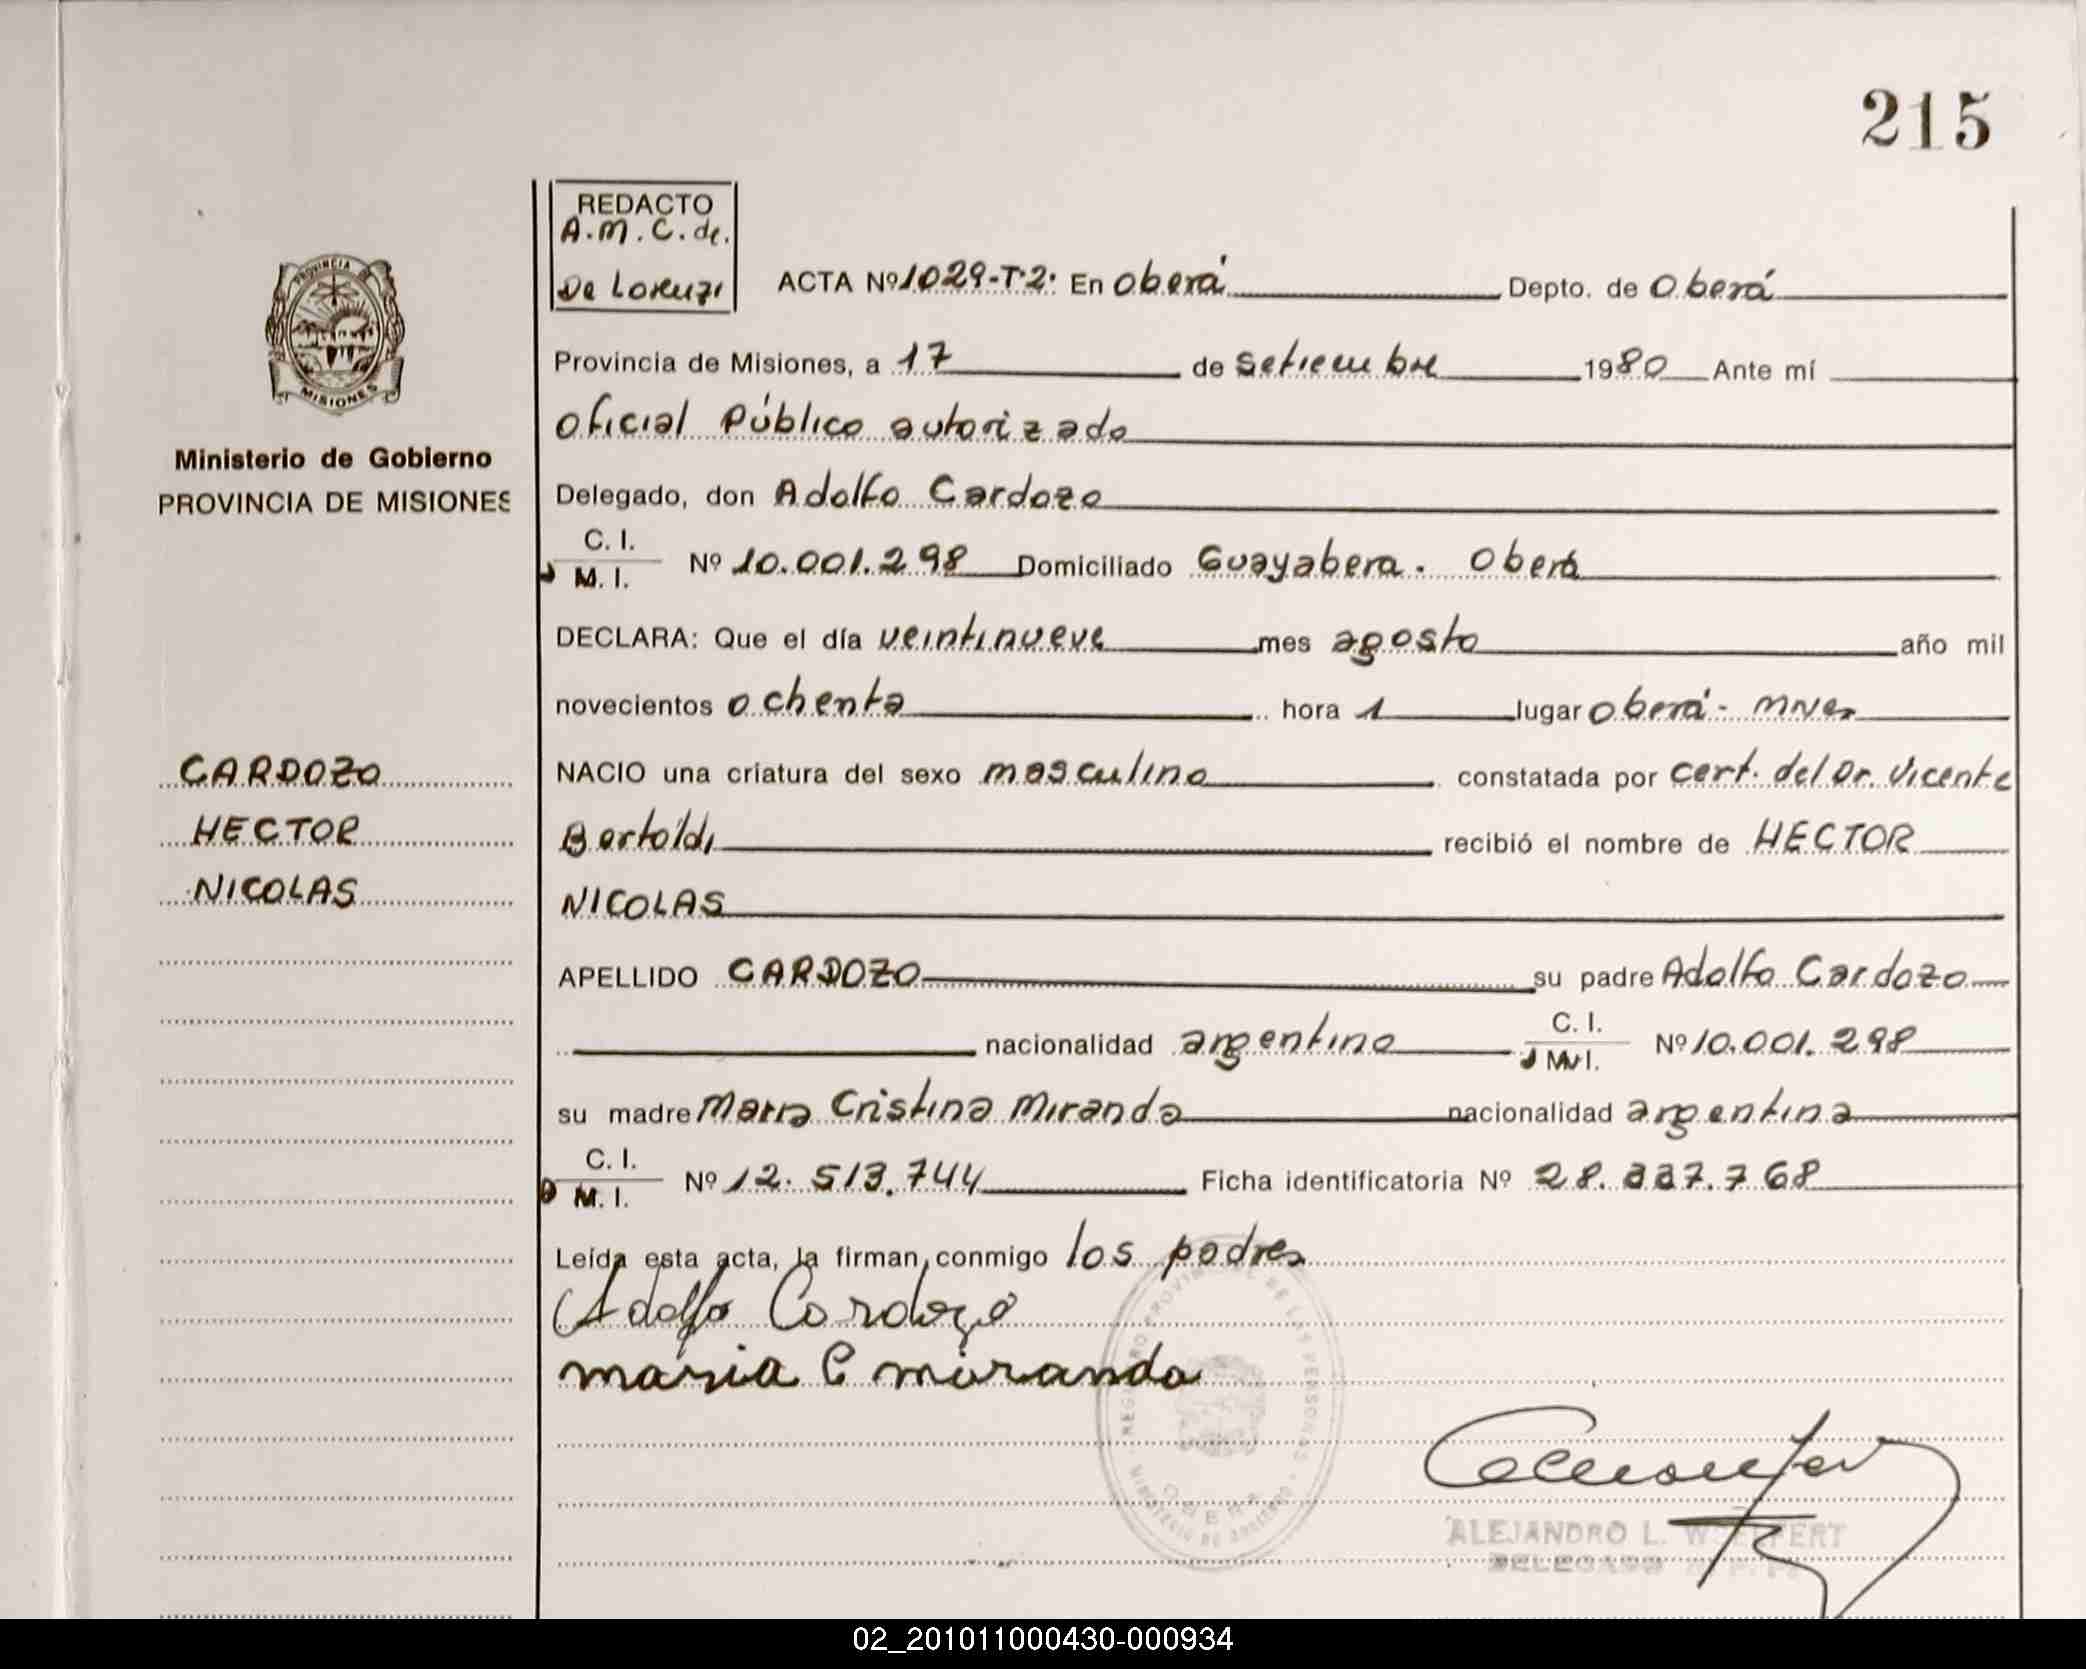 215
REDACTO
A.M.C. de.
De Lorenzi
ACTA Nº 1029-T2: En Oberá Depto. de Oberá
Provincia de Misiones, a 17 de Setiembre 1980 Ante mí
Oficial Público autorizado
Delegado, don Adolfo Cardozo
C. I.
M. I. Nº 10.001.298 Domiciliado Guayabera. Oberá
DECLARA: Que el día veintinueve mes agosto año mil
novecientos ochenta hora 1 lugar Oberá - Mnes
NACIO una criatura del sexo masculino constatada por cert. del Dr. Vicente
Bertoldi recibió el nombre de HECTOR
NICOLAS
APELLIDO CARDOZO su padre Adolfo Cardozo
nacionalidad argentino C. I. M. I. Nº 10.001.298
su madre Maria Cristina Miranda nacionalidad argentina
C. I.
M. I. Nº 12.513.744 Ficha identificatoria Nº 28.337.768
Leída esta acta, la firman conmigo los padres
Adolfo Cardozo
maria C miranda
PROVINCIA DE
MISIONES
Ministerio de Gobierno
PROVINCIA DE MISIONES
CARDOZO
HECTOR
NICOLAS
REGISTRO PROVINCIAL DE LAS PERSONAS
OBERA
ALEJANDRO L.
DELEGADO
02_201011000430-000934